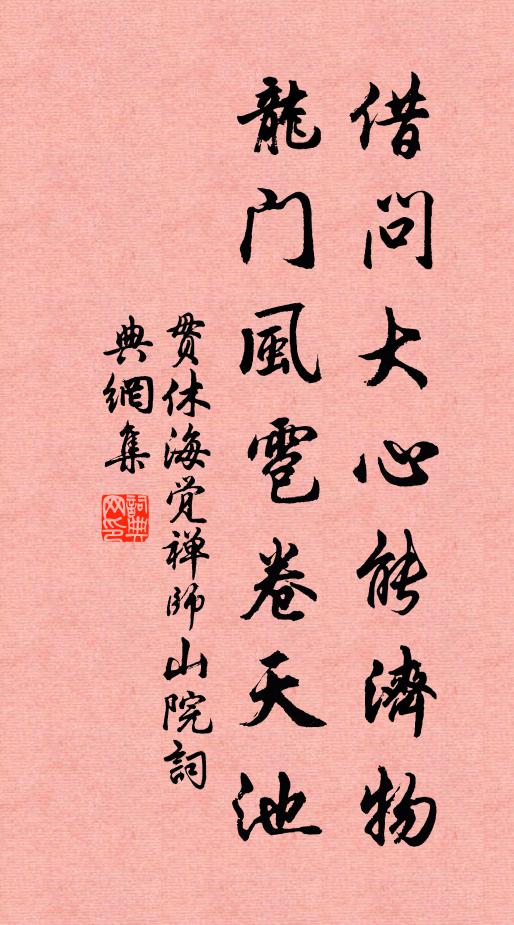 借问大心能濟物
龍门風雹卷天池
贯休海觉禅師山院詞
典網集
詞典网印